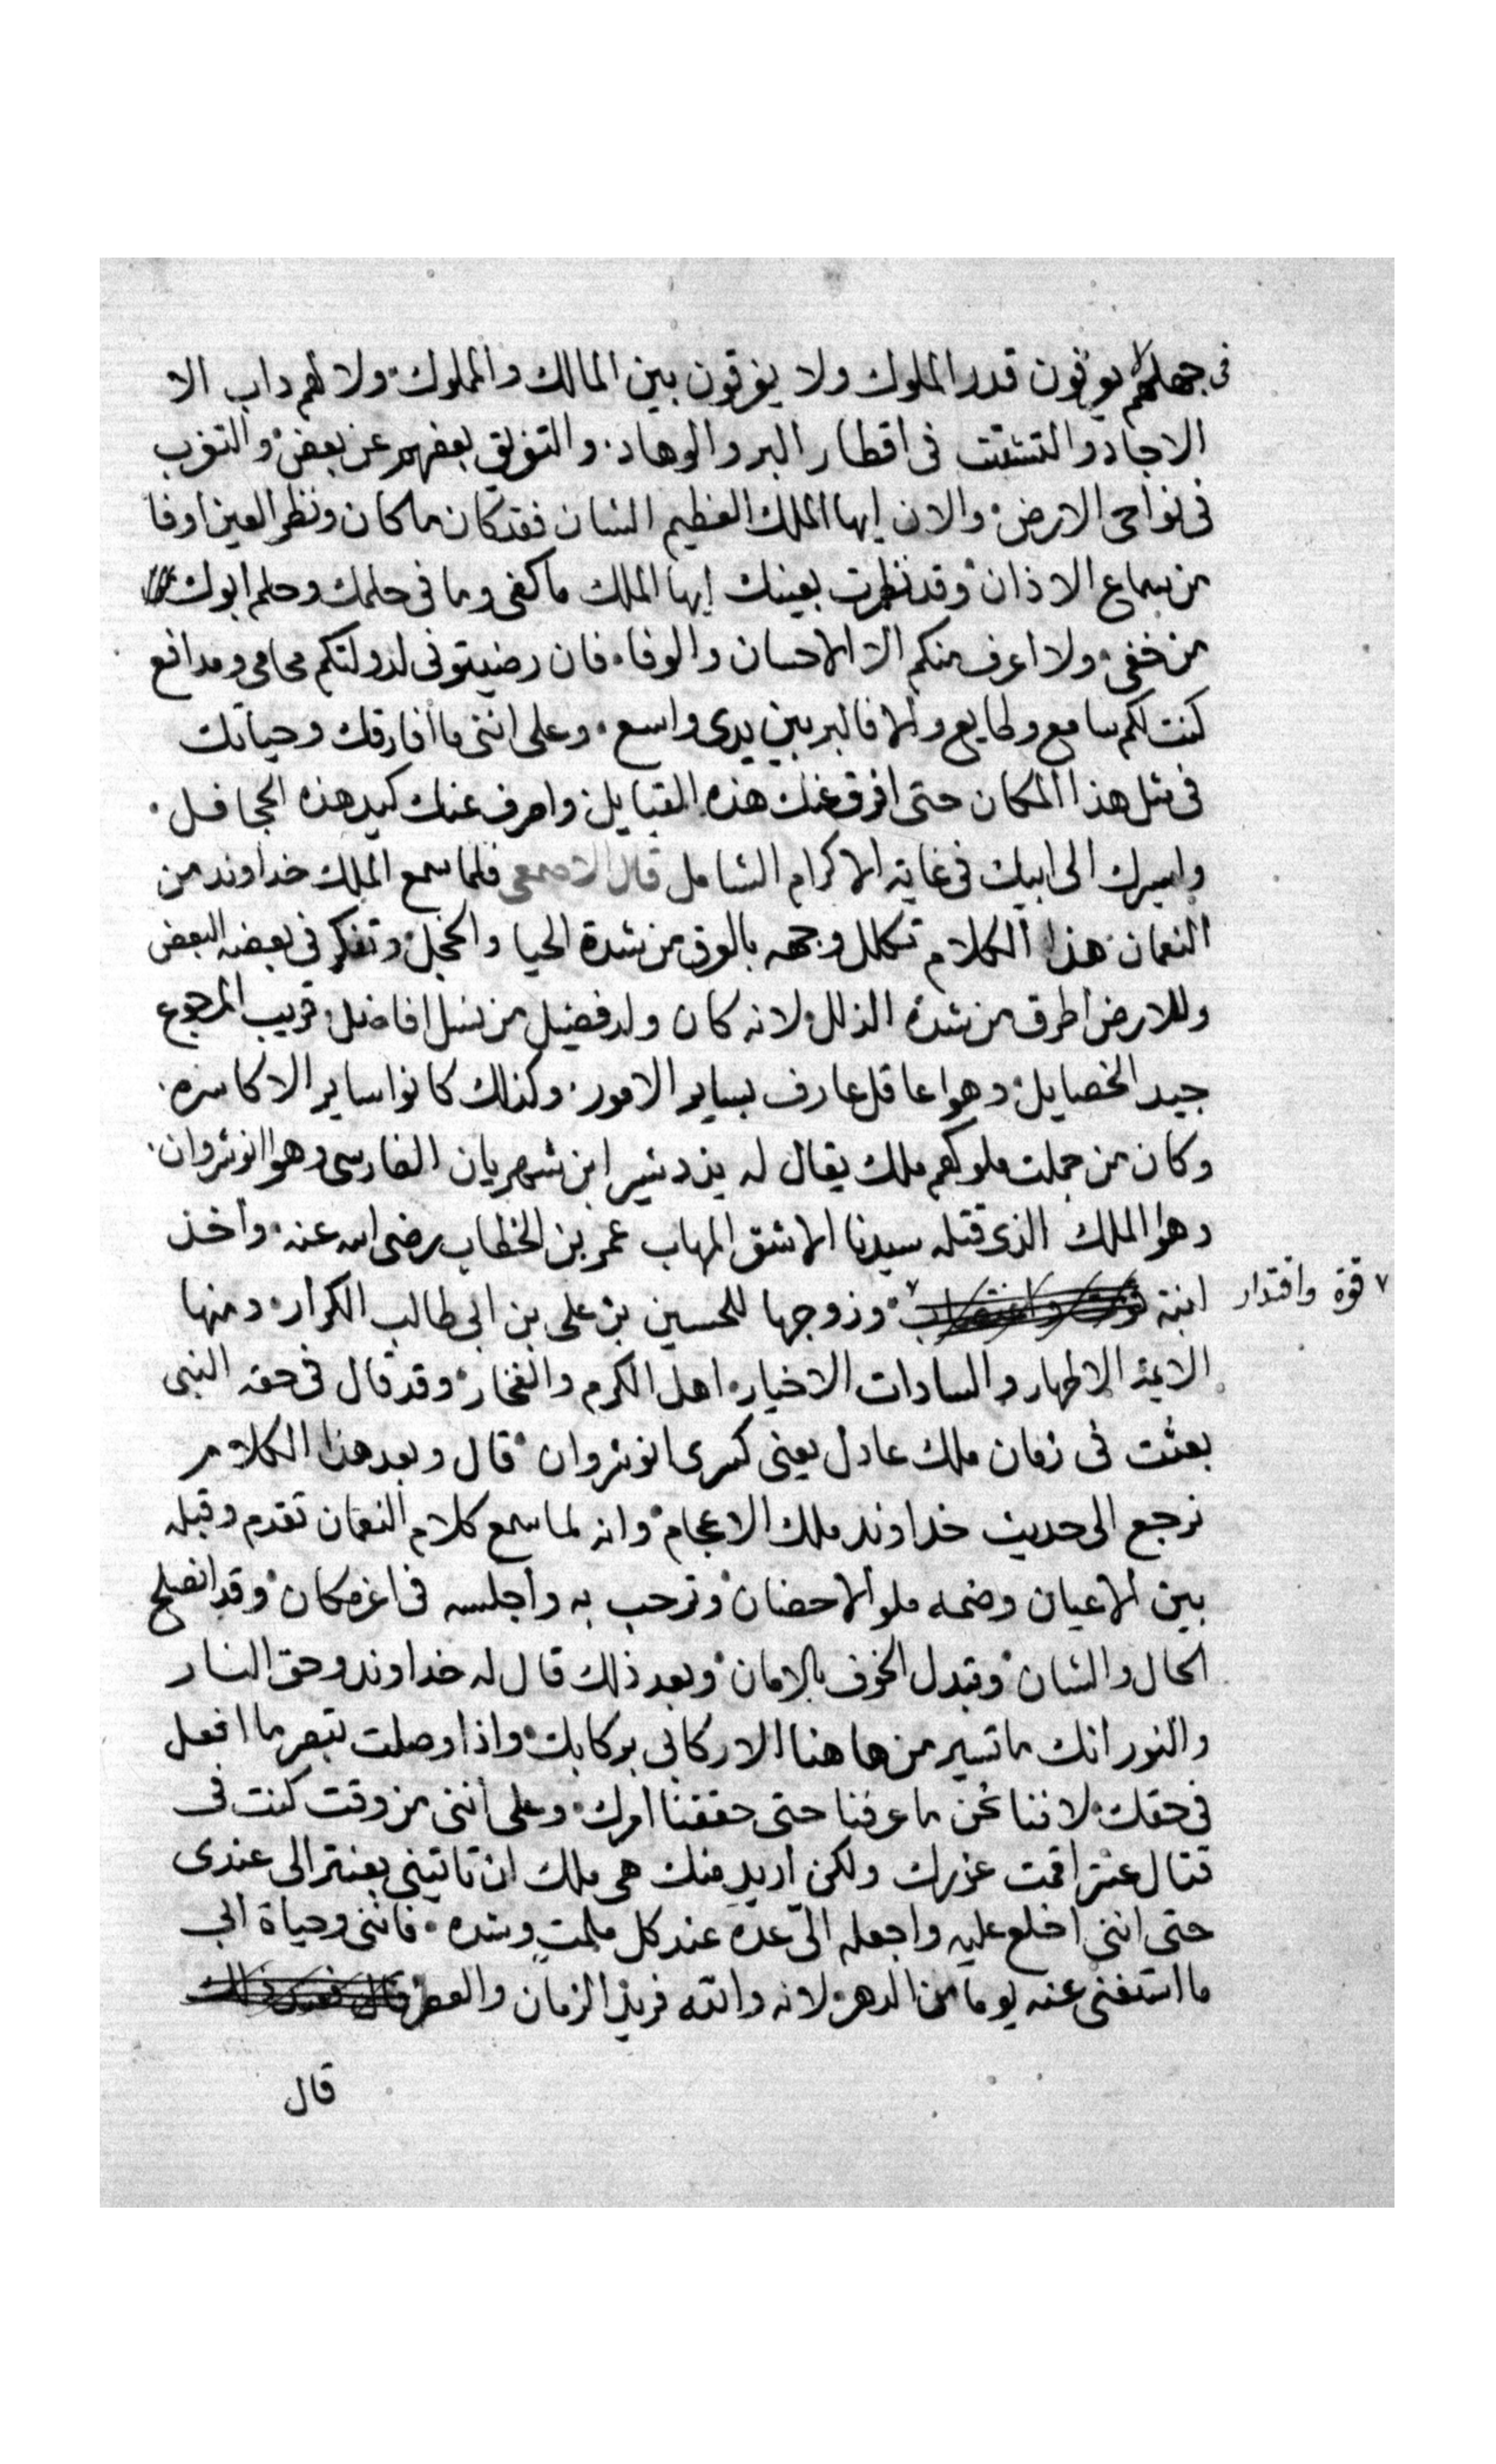 فى جهلهم لا يوقون قدر الملوك ولا يفرقون بين المالك والمملوك ولا لهم داب الا
الاجاد والتشتت فى اقطار البر والوهاد والتفريق بعضهم عن بعض والتغرب
فى نواحى الارض والان ايها الملك العظيم الشان فقد كان ما كان ونظر العين اوفا
من سماع الاذان وقد نظرت بعينك ايها الملك ما كفى وما فى حلمك وحلم ابوك
من خفى ولا اعرف منكم الا الاحسان والوفا فان رضيتونى لدولتكم محامى ومدافع
كنت لكم سامع وطايع والا فالبر بين يدى واسع وعلى اننى ما افارقك وحياتك
فى مثل هذا المكان حتى افرق عنك هذه القبايل واصرف عنك كيد هذه الجحافل
واسيرك الى ابيك فى غاية الاكرام الشامل قال الاصمعى فلما سمع الملك خداوند من
النعمان هذا الكلام تكلل وجهه بالعرق من شدة الحيا والخجل وتفكر فى بعضه البعض
وللارض اطرق من شدة الذلل لانه كان ولد فضيل من نسل افاضل قريب المرجوع
جيد الخصايل وهوا عاقل عارف بساير الامور وكذلك كانوا ساير الاكاسره
وكان من جملت ملوكهم ملك يقال له يزدشير ابن شهريان الفارسى وهوا انوشروان
وهوا الملك الذى قتله سيدنا الاشق المهاب عمر بن الخطاب رضى الله عنه واخذ
ابنة وزوجها للحسين بن على بن ابى طالب الكرار ومنها
٧ قوة واقتدار
الايمة الاطهار والسادات الاخيار اهل الكرم والفخار وقد قال فى حقه النبى
بعثت فى زمان ملك عادل يعنى كسرى انوشروان قال وبعد هذا الكلام
نرجع الى حديث خداوند ملك الاعجام وانه لما سمع كلام النعمان تقدم وقبله
بين الاعيان وضمه ملو الاحضان وترحب به واجلسه فى اعز مكان وقد انصلح
الحال والشان وتبدل الخوف بالامان وبعد ذلك قال له خداوند وحق النار
والنور انك ما تسير من هاهنا الا ركابى بركابك واذا وصلت تبصر ما افعل
فى حقك لاننا نحن ما عرفنا حتى حققنا امرك وعلى اننى من وقت كنت فى
قتال عنتر اقمت عذرك ولكن اريد منك هى ملك ان تاتينى بعنتر الى عندى
حتى اننى اخلع عليه واجعله الىّ عدة عند كل ملمت وشده فاننى وحياة ابى
ما استغنى عنه يوما من الدهر لانه والله فريد الزمان والعصر
قال